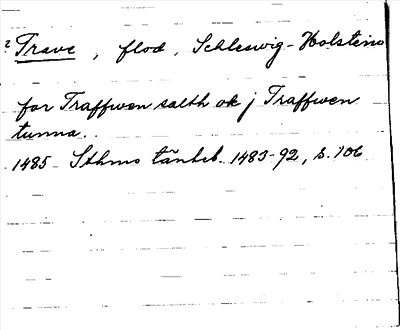 ? Trave, flod, Schleswig-Holstein
for Traffwen salth ok j Traffwen
tunna..
1485 Sthms tänkeb. 1483-92, s. 106